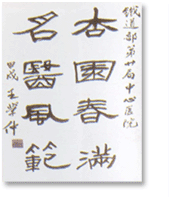 鐵道部第廿局中心医院
杏園春滿
名醫風範
甲戌王學仲